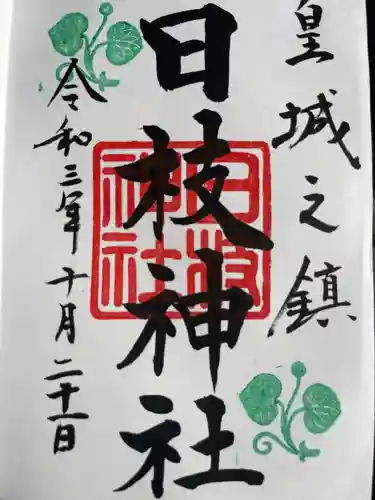 皇城之鎮
日枝神社
日枝
神社
令和三年十月二十一日